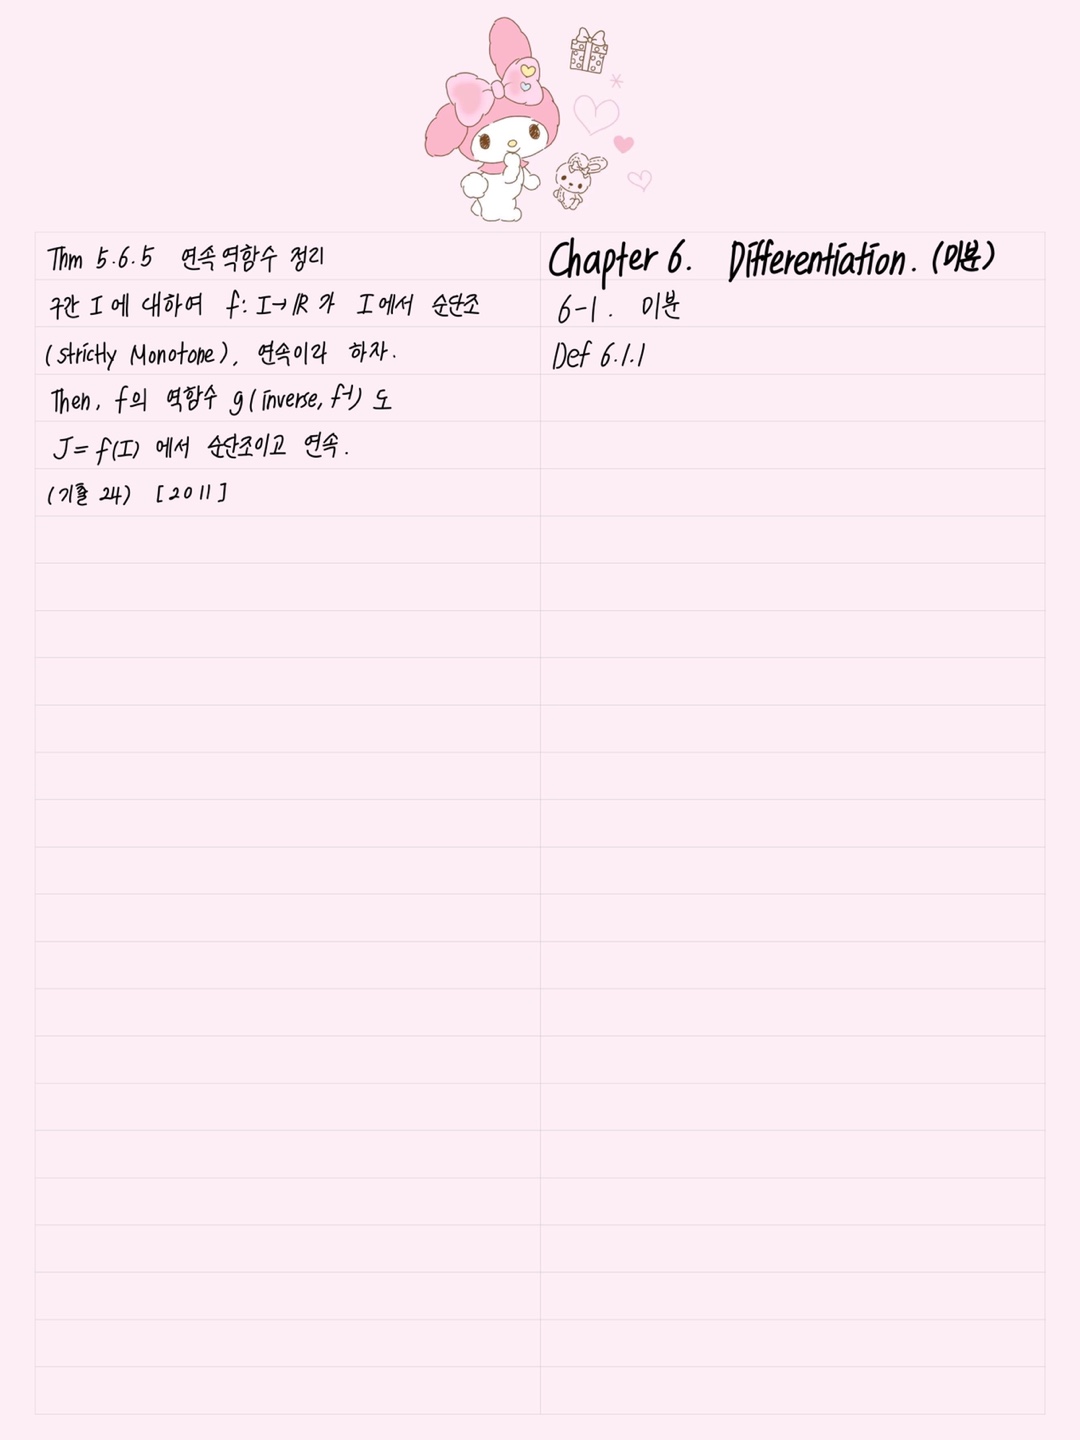 Thm 5.6.5 연속 역함수 정리
구간 I 에 대하여 f: I→ℝ 가 I에서 순단조
(strictly Monotone), 연속이라 하자.
Then, f의 역함수 g(inverse, f⁻¹) 도
J = f(I) 에서 순단조이고 연속.
(기출 24) [2011]
Chapter 6. Differentiation. (미분)
6-1. 미분
Def 6.1.1